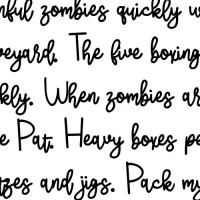 nful zombies quickly w
eyard. The five boxing
kly. When zombies ar
e Pat. Heavy boxes pe
tzes and jigs. Pack my